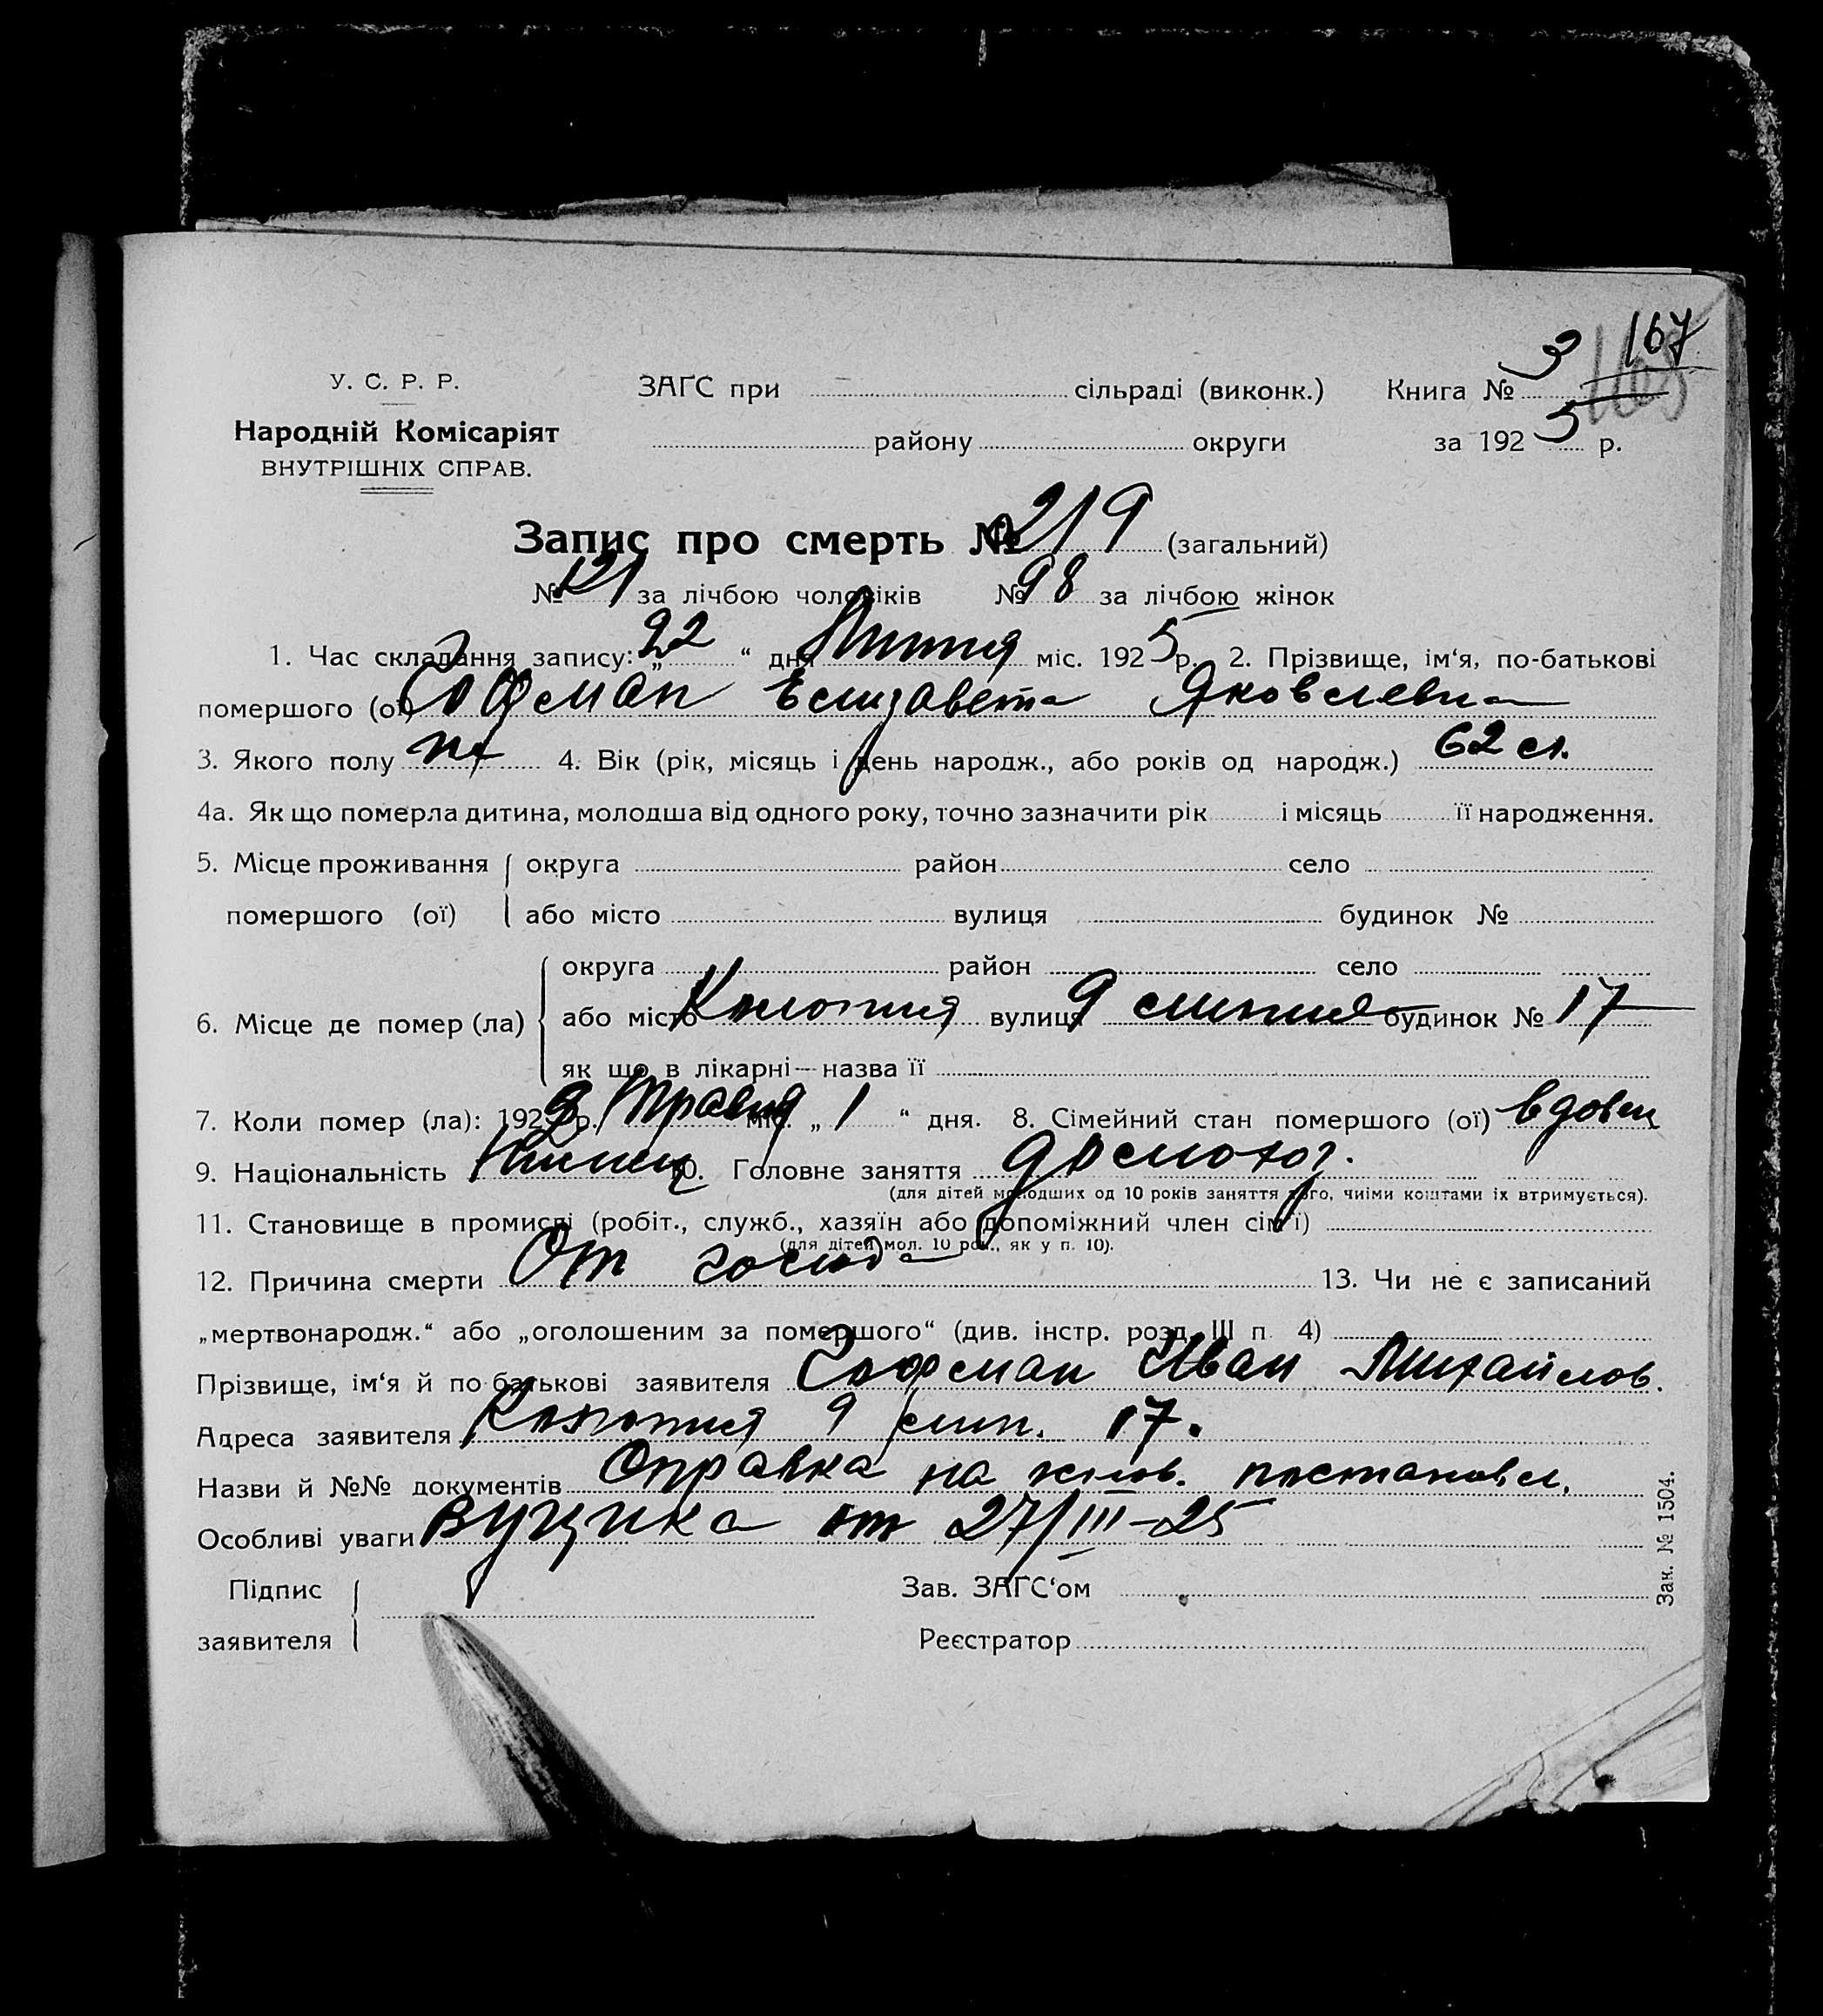 167
У. С. Р. Р. ЗАГС при сільраді (виконк.) Книга № 3
Народній Комісаріят району округи за 1925 р.
ВНУТРІШНІХ СПРАВ.
Запис про смерть № 219 (загальний)
№ 121 за лічбою чоловіків № 98 за лічбою жінок
1. Час складання запису: „22“ дня Липня міс. 1925 р. 2. Прізвище, ім‘я, по-батькові
помершого (ої) Гофман Елизавета Яковлевна
3. Якого полу 4. Вік (рік, місяць і день народж., або років од народж.) 62 л.
4а. Як що померла дитина, молодша від одного року, точно зазначити рік і місяць її народження.
5. Місце проживання округа район село
помершого (ої) або місто вулиця будинок №
округа район село
6. Місце де помер (ла) або місто Колонія вулиця 9 линия будинок № 17
як що в лікарні—назва її
7. Коли помер (ла): 192 р. Травня міс. „1“ дня. 8. Сімейний стан помершого (ої) вдовец
9. Національність Німец 10. Головне заняття домохоз.
(для дітей молодших од 10 років заняття того, чиїми коштами їх втримується).
11. Становище в промислі (робіт., служб., хазяїн або допоміжний член сім‘ї)
(для дітей мол. 10 рок., як у п. 10).
12. Причина смерти От голода 13. Чи не є записаний
„мертвонародж.“ або „оголошеним за помершого“ (див. інстр. розд. III п 4)
Прізвище, ім‘я й по батькові заявителя Гофман Иван Михайлов.
Адреса заявителя Колония 9 лин. 17.
Назви й №№ документів Справка на основ. постановл.
Особливі уваги ВУЦИКа от 27/III-25
Підпис Зав. ЗАГС‘ом
заявителя Реєстратор
Зак. № 1504.